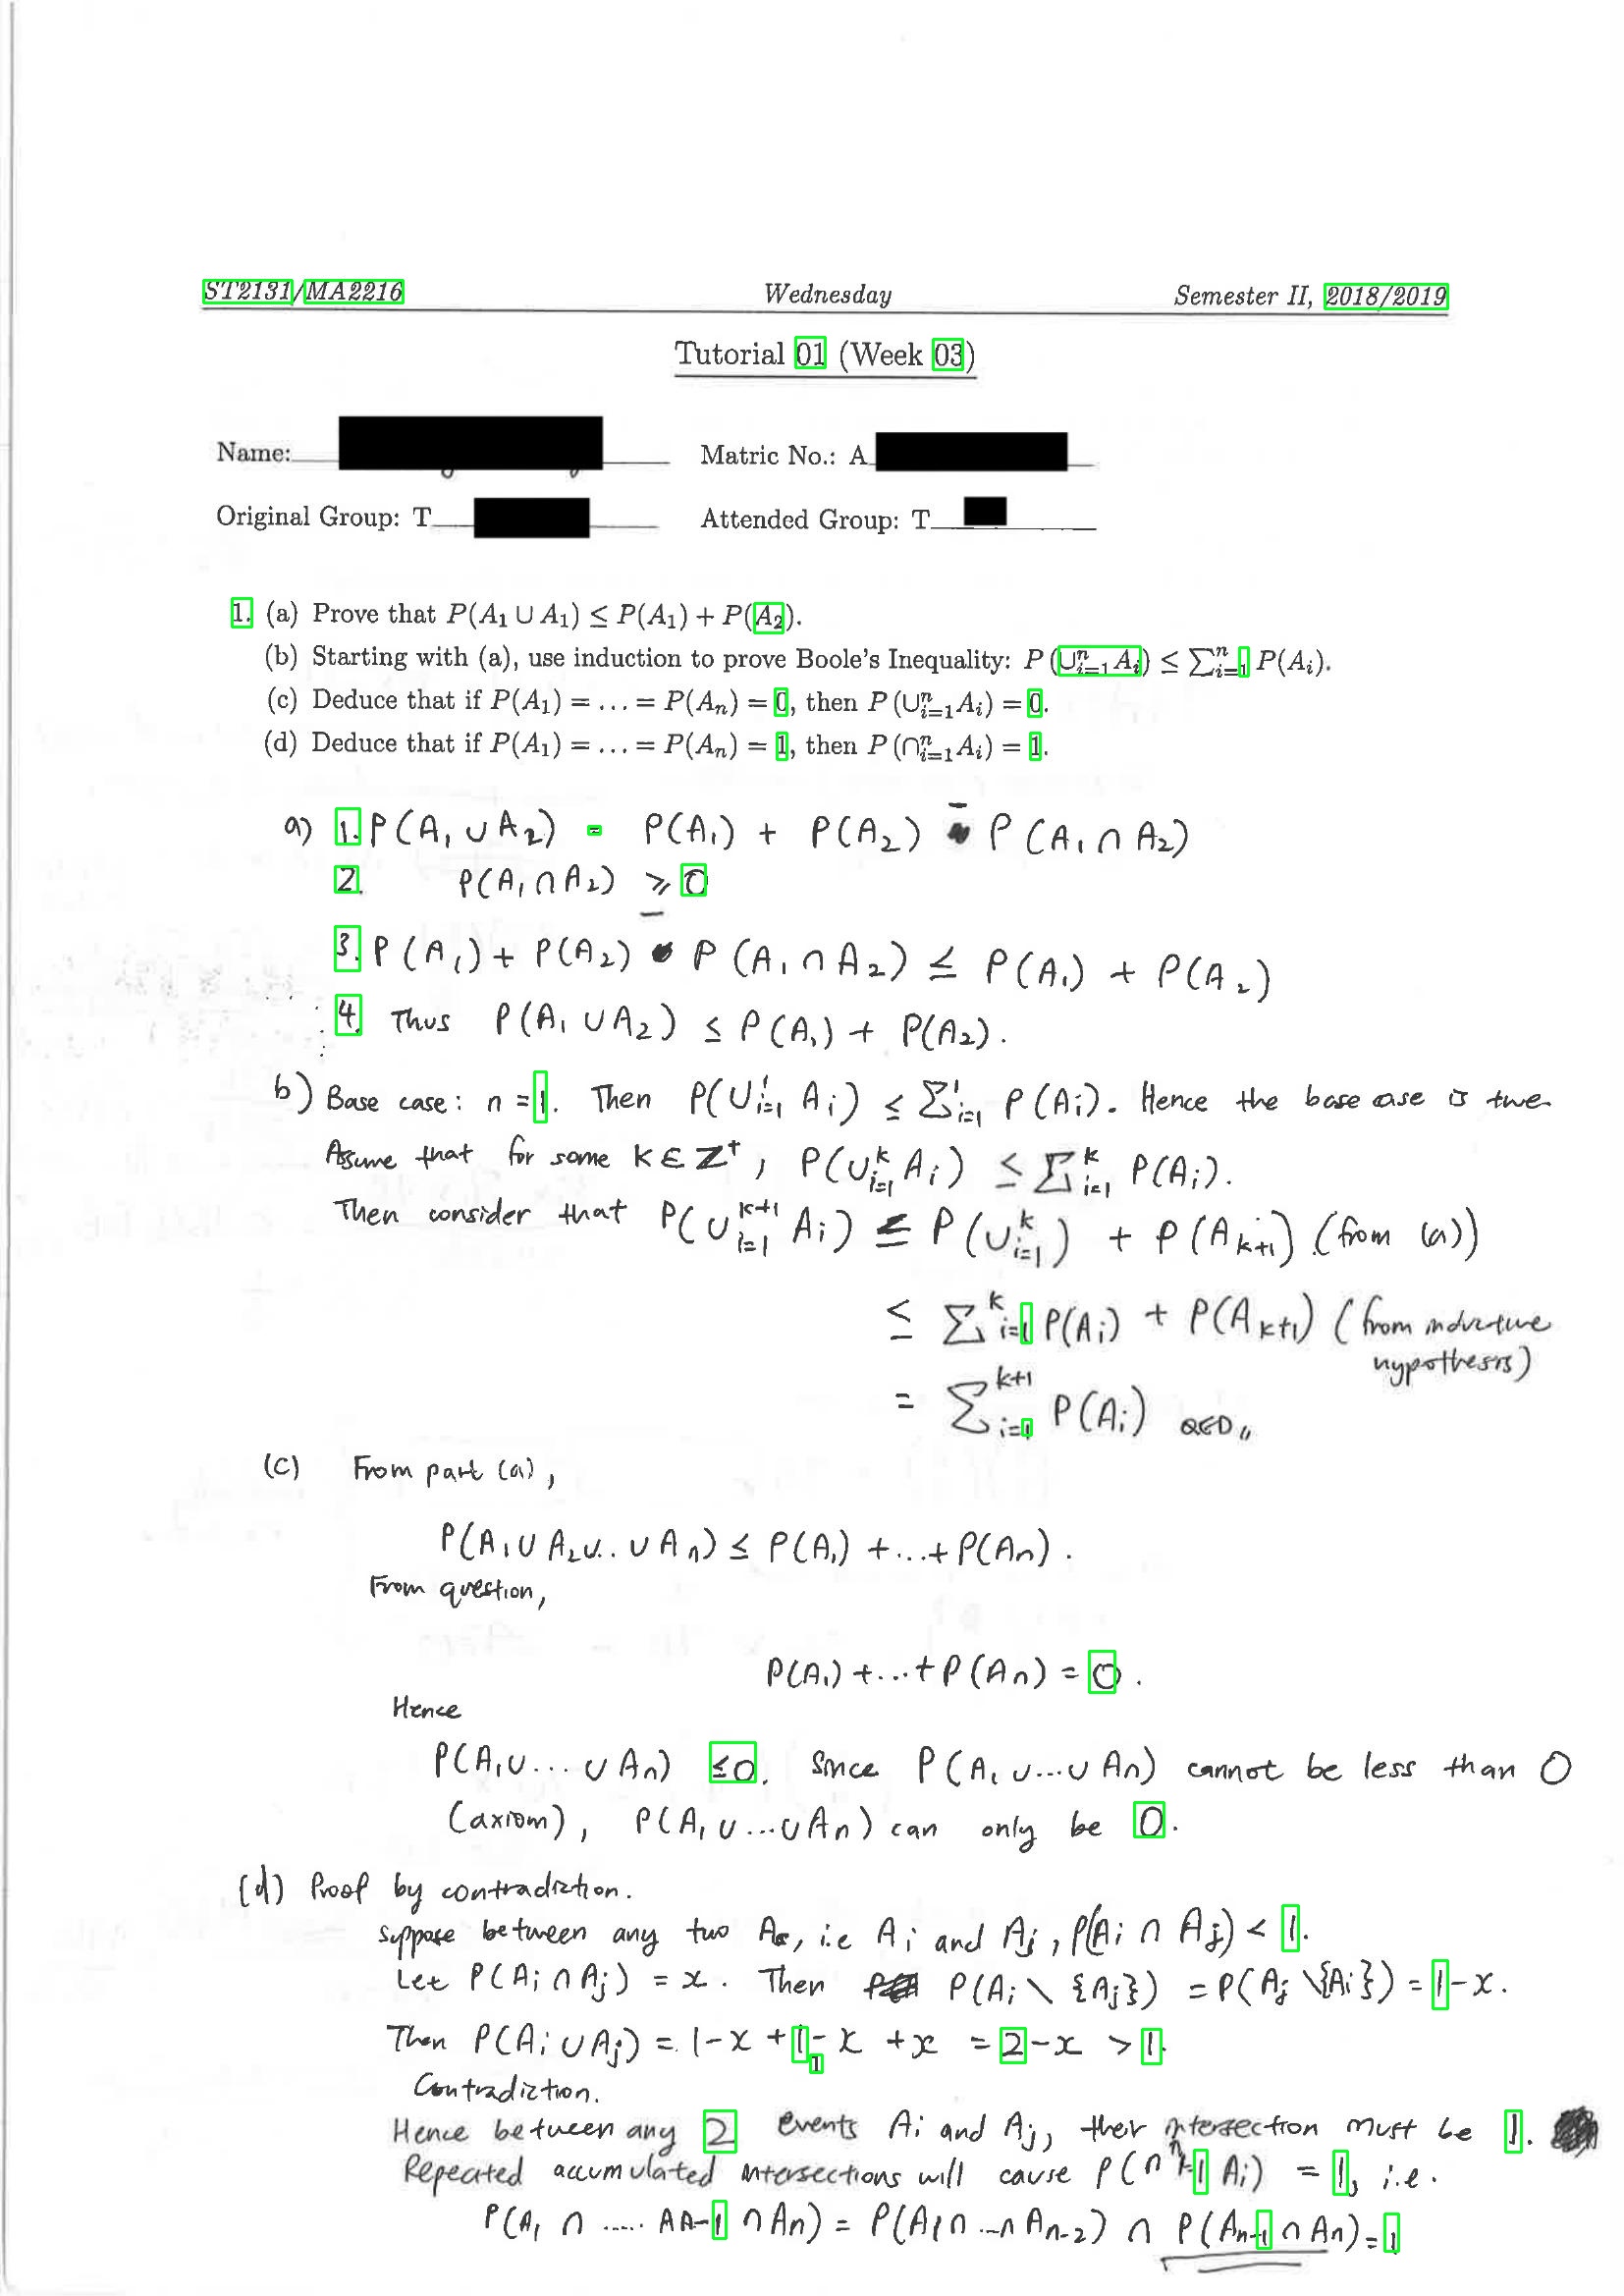 ST2131/MA2216 Wednesday Semester II, 2018/2019
Tutorial 01 (Week 03)
Name: Matric No.: A
Original Group: T Attended Group: T
1. (a) Prove that P(A₁ ∪ A₁) ≤ P(A₁) + P(A₂).
(b) Starting with (a), use induction to prove Boole's Inequality: P (∪ⁿᵢ₌₁ Aᵢ) ≤ ∑ⁿᵢ₌₁ P(Aᵢ).
(c) Deduce that if P(A₁) = ... = P(Aₙ) = 0, then P (∪ⁿᵢ₌₁Aᵢ) = 0.
(d) Deduce that if P(A₁) = ... = P(Aₙ) = 1, then P (∩ⁿᵢ₌₁Aᵢ) = 1.
a) 1. P(A₁ ∪ A₂) = P(A₁) + P(A₂) - P(A₁ ∩ A₂)
2. P(A₁ ∩ A₂) ⩾ 0
3. P(A₁) + P(A₂) - P(A₁ ∩ A₂) ≤ P(A₁) + P(A₂)
4. Thus P(A₁ ∪ A₂) ≤ P(A₁) + P(A₂).
b) Base case: n = 1. Then P(∪¹ᵢ₌₁ Aᵢ) ≤ ∑¹ᵢ₌₁ P(Aᵢ). Hence the base case is true
Assume that for some K ∈ Z⁺, P(∪ᵏᵢ₌₁ Aᵢ) ≤ ∑ᵏᵢ₌₁ P(Aᵢ).
Then consider that P(∪ᵏ⁺¹ᵢ₌₁ Aᵢ) ≤ P(∪ᵏᵢ₌₁) + P(Aₖ₊₁) (from (a))
≤ ∑ᵏᵢ₌₁ P(Aᵢ) + P(Aₖ₊₁) (from inductive
hypothesis)
= ∑ᵏ⁺¹ᵢ₌₁ P(Aᵢ) QED
(c) From part (a),
P(A₁ ∪ A₂ ∪.. ∪ Aₙ) ≤ P(A₁) + ... + P(Aₙ).
From question,
P(A₁) + ... + P(Aₙ) = 0.
Hence
P(A₁ ∪ ... ∪ Aₙ) ≤ 0. Since P(A₁ ∪ ... ∪ Aₙ) cannot be less than 0
(axiom), P(A₁ ∪ ... ∪ Aₙ) can only be 0.
(d) Proof by contradiction.
Suppose between any two As, i.e Aᵢ and Aⱼ, P(Aᵢ ∩ Aⱼ) < 1.
Let P(Aᵢ ∩ Aⱼ) = x. Then P(Aᵢ \ {Aⱼ}) = P(Aⱼ \ {Aᵢ}) = 1-x.
Then P(Aᵢ ∪ Aⱼ) = 1-x + 1-x + x = 2-x > 1.
1
Contradiction.
Hence between any 2 events Aᵢ and Aⱼ, their intersection must be 1.
Repeated accumulated intersections will cause P(∩ⁿᵢ₌₁ Aᵢ) = 1, i.e.
P(A₁ ∩ ..... An-1 ∩ An) = P(A₁ ∩ ... ∩ Aₙ₋₂) ∩ P(Aₙ₋₁ ∩ Aₙ) = 1